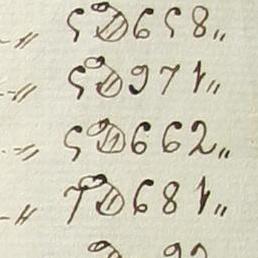 -〃 5$658〃
-〃 5$971〃
-〃 5$662〃
-〃 7$681〃